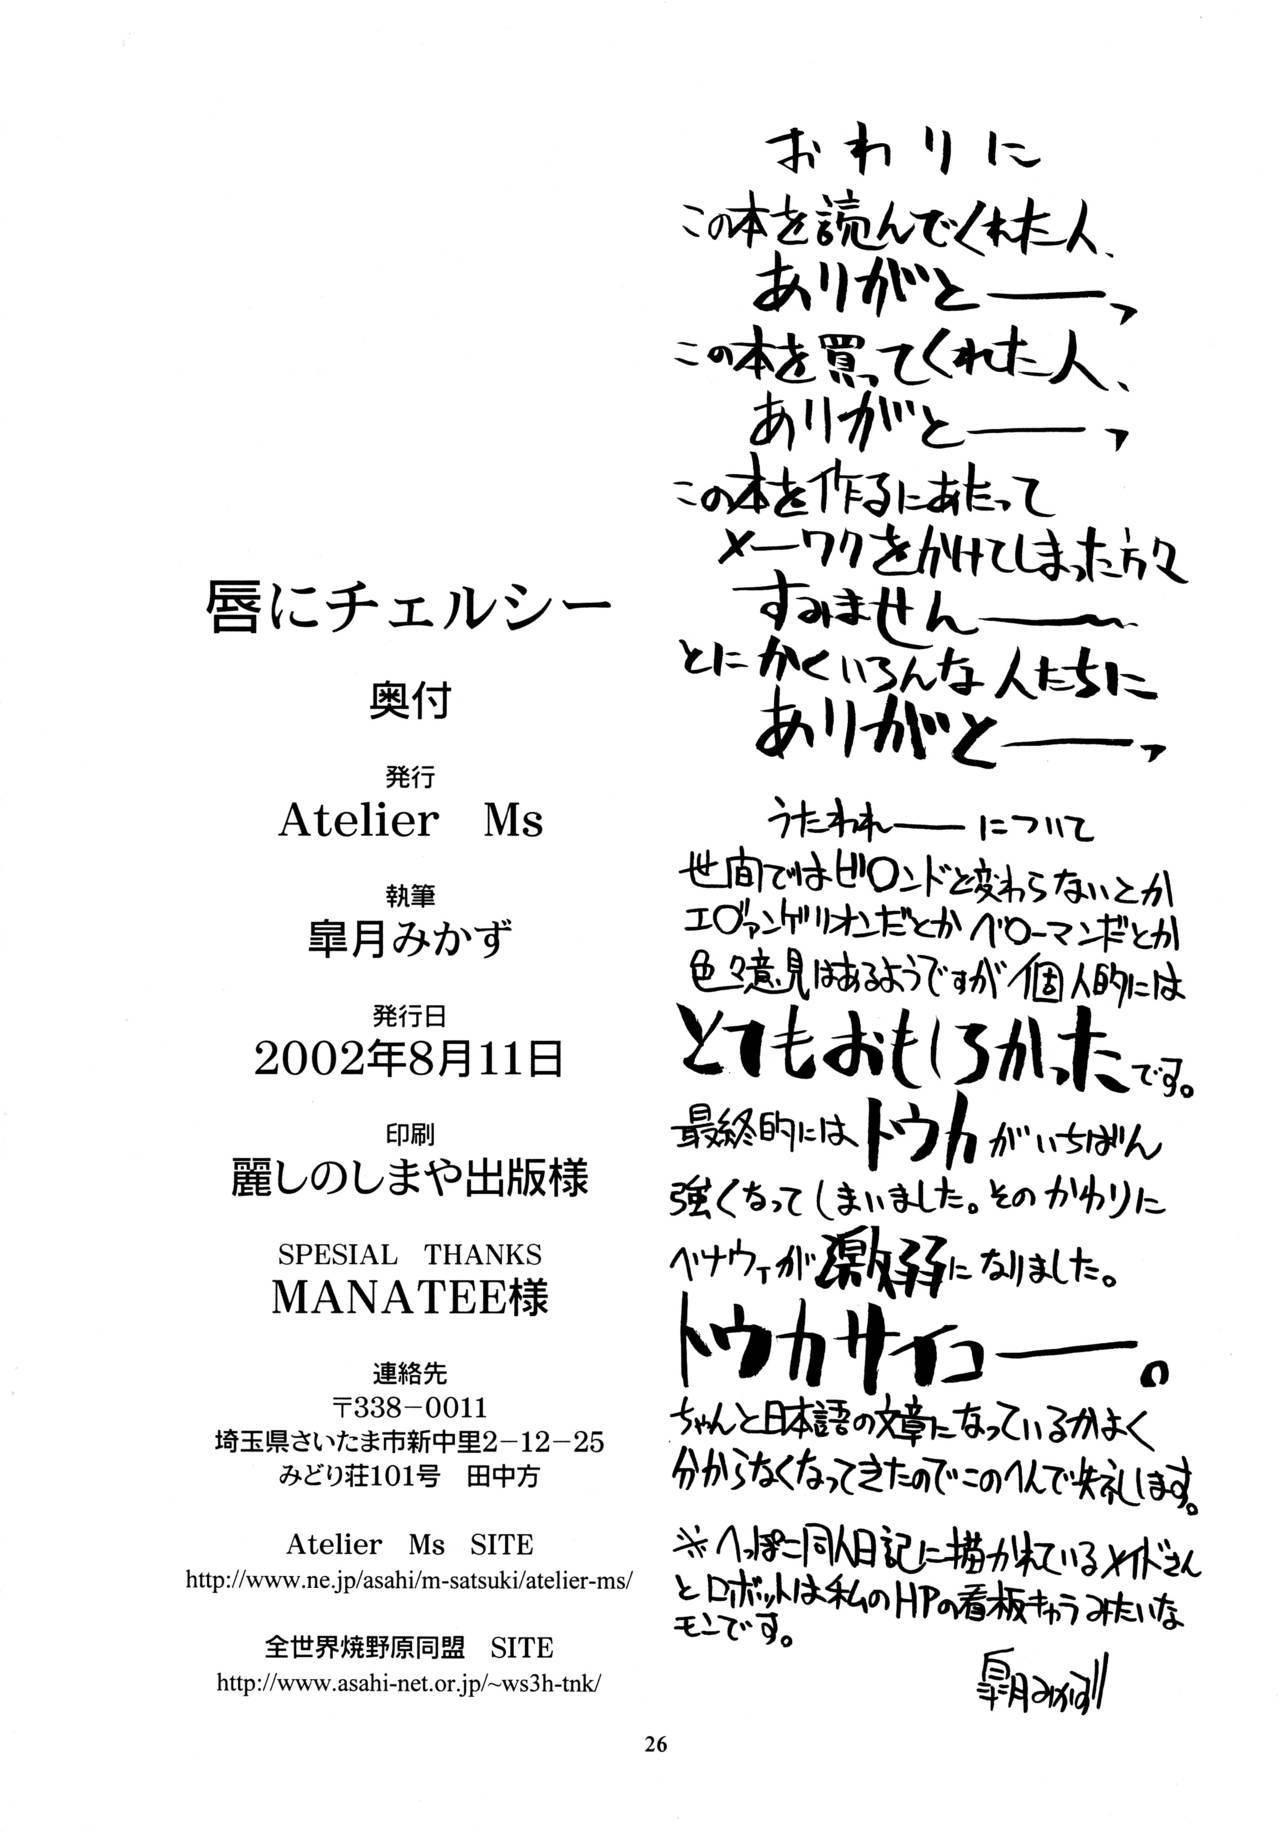 おわりに
この本を読んでくれた人、
ありがとーーっ
この本を買ってくれた人、
ありがとーーっ
この本を作るにあたって
メーワクをかけてしまった方々
すみませんーー〜
とにかくいろんな人たちに
ありがとーーっ
うたわれーーについて
世間ではビ〇ンドと変わらないとか
エ〇ァンゲリオンだとかベ〇ーマンだとか
色々意見はあるようですが個人的には
とてもおもしろかったです。
最終的にはトウカがいちばん
強くなってしまいました。そのかわりに
ベナウィが激弱になりました。
トウカサイコーー。
ちゃんと日本語の文章になっているかよく
分からなくなってきたのでこのへんで失礼します。
※へっぽこ同人日記に描かれているメイドさん
とロボットは私のHPの看板キャラみたいな
モンです。
皐月みかず
唇にチェルシー
奥付
発行
Atelier Ms
執筆
皐月みかず
発行日
2002年8月11日
印刷
麗しのしまや出版様
SPESIAL THANKS
MANATEE様
連絡先
〒338−0011
埼玉県さいたま市新中里2−12−25
みどり荘101号 田中方
Atelier Ms SITE
http://www.ne.jp/asahi/m-satsuki/atelier-ms/
全世界焼野原同盟 SITE
http://www.asahi-net.or.jp/~ws3h-tnk/
26